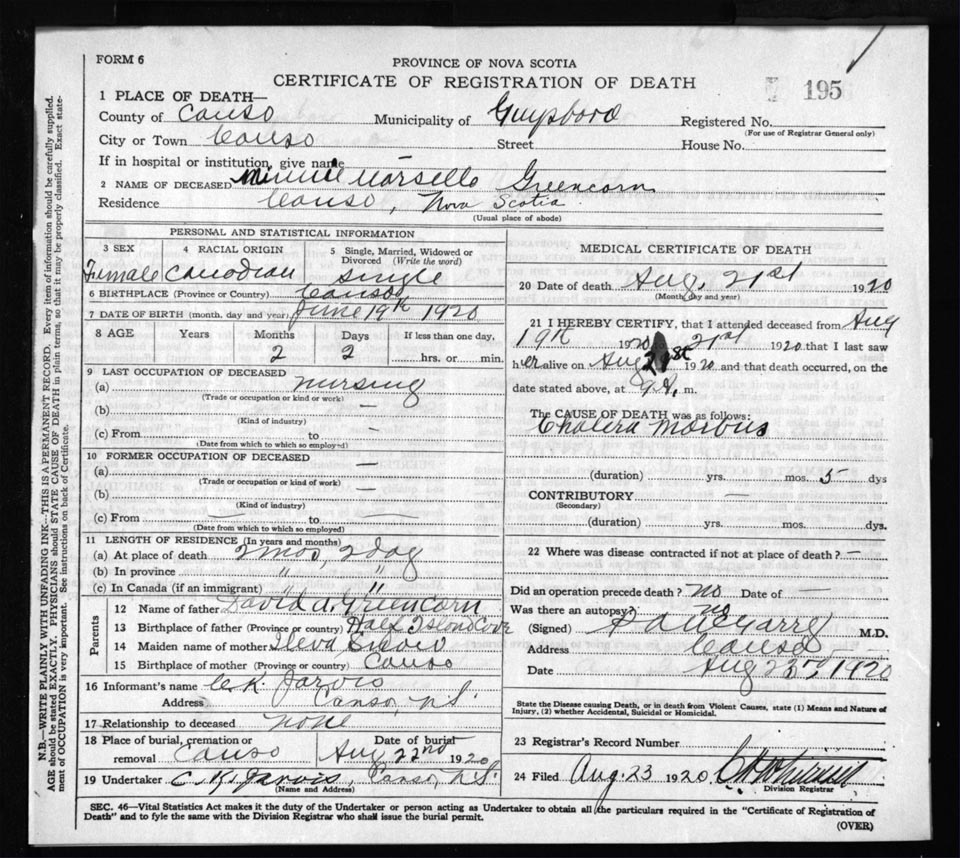 FORM 6
PROVINCE OF NOVA SCOTIA
CERTIFICATE OF REGISTRATION OF DEATH
195
1 PLACE OF DEATH—
County of Canso Municipality of Guysboro Registered No.
(For use of Registrar General only)
City or Town Canso Street House No.
If in hospital or institution, give name —
2 NAME OF DECEASED Minnie Marsello Greencorn
Residence Canso, Nova Scotia
(Usual place of abode)
PERSONAL AND STATISTICAL INFORMATION
3 SEX 4 RACIAL ORIGIN 5 Single, Married, Widowed or Divorced (Write the word)
Female Canadian Single
6 BIRTHPLACE (Province or Country) Canso
7 DATE OF BIRTH (month, day and year) June 19th 1920
8 AGE Years Months Days If less than one day,
2 2 hrs. or min.
9 LAST OCCUPATION OF DECEASED
(a) nursing
(Trade or occupation or kind or work)
(b) —
(Kind of industry)
(c) From to —
(Date from which to which so employed)
10 FORMER OCCUPATION OF DECEASED
(a) —
(Trade or occupation or kind of work)
(b) —
(Kind of industry)
(c) From — to —
(Date from which to which so employed)
11 LENGTH OF RESIDENCE (In years and months)
(a) At place of death 2 mos, 2 day
(b) In province " "
(c) In Canada (if an immigrant) " "
Parents
12 Name of father David A. Greencorn
13 Birthplace of father (Province or country) Cove
14 Maiden name of mother
15 Birthplace of mother (Province or country) Canso
16 Informant's name C. K. Jarvis
Address Canso, N.S.
17 Relationship to deceased none
18 Place of burial, cremation or removal Canso Date of burial Aug 22nd 1920
19 Undertaker C. K. Jarvis, Canso, N.S.
(Name and Address)
MEDICAL CERTIFICATE OF DEATH
20 Date of death Aug. 21st 1920
(Month, day and year)
21 I HEREBY CERTIFY, that I attended deceased from Aug
19th 1920 21st 1920 that I last saw
her alive on Aug 21st 1920 and that death occurred, on the
date stated above, at 9 A. m.
The CAUSE OF DEATH was as follows:
Cholera Morbus
(duration) yrs. mos. 5 dys
CONTRIBUTORY —
(Secondary)
(duration) yrs. mos. dys.
22 Where was disease contracted if not at place of death? —
Did an operation precede death? no Date of —
Was there an autopsy? no
(Signed) M.D.
Address Canso
Date Aug 23rd 1920
State the Disease causing Death, or in death from Violent Causes, state (1) Means and Nature of
Injury, (2) whether Accidental, Suicidal or Homicidal.
23 Registrar's Record Number
24 Filed Aug. 23 1920
Division Registrar
SEC. 46—Vital Statistics Act makes it the duty of the Undertaker or person acting as Undertaker to obtain all the particulars required in the "Certificate of Registration of
Death" and to fyle the same with the Division Registrar who shall issue the burial permit.
(OVER)
N.B.—WRITE PLAINLY WITH UNFADING INK—THIS IS A PERMANENT RECORD. Every item of information should be carefully supplied.
AGE should be stated EXACTLY. PHYSICIANS should STATE CAUSE OF DEATH in plain terms, so that it may be properly classified. Exact state-
ment of OCCUPATION is very important. See instructions on back of Certificate.